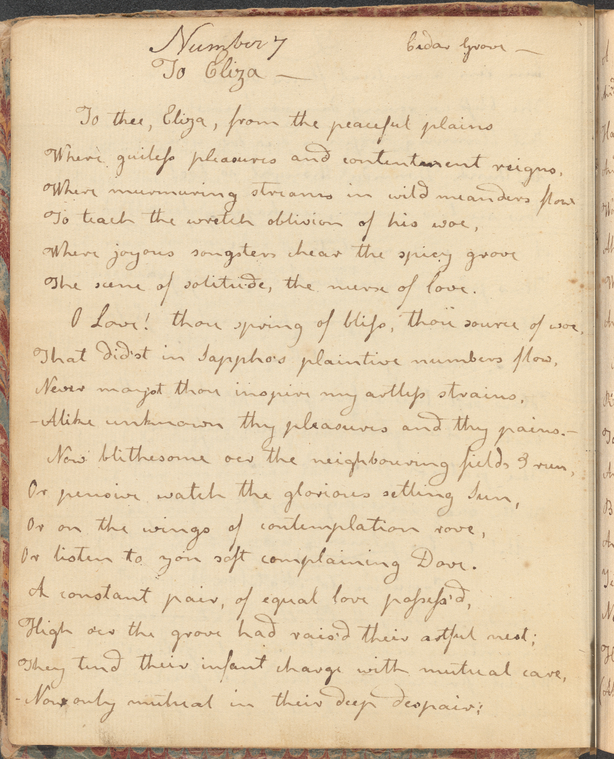 Number 7
Cedar Grove —
To Eliza —
To thee, Eliza, from the peaceful plains
Where guiless pleasures and contentment reigns,
Where murmuring streams in wild meanders flow
To teach the wretch oblivion of his woe,
Where joyous songsters chear the spicy grove
The scene of solitude, the nurse of love.
O Love! thou spring of bliss, thou source of woe,
That did'st in Sappho's plaintive numbers flow,
Never mayst thou inspire my artless strains,
-Alike unknown thy pleasures and thy pains.-
Now blithesome oer the neighbouring fields I run,
Or pensive watch the glorious setting Sun,
Or on the wings of contemplation rove,
Or listen to yon soft complaining Dove.
A constant pair, of equal love possess'd,
High oer the grove had rais'd their artful nest;
They tend their infant charge with mutual care,
-Now only mutual in their deep despair;